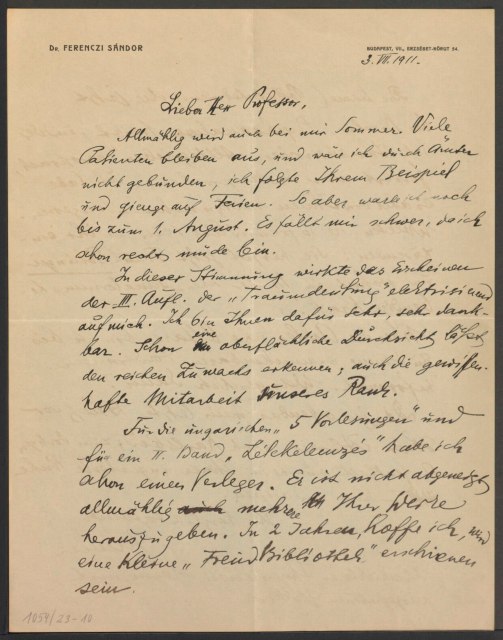 Dr. FERENCZI SÁNDOR
BUDAPEST, VII., ERZSÉBET-KÖRÚT 54.
3. VII. 1911.
Lieber Herr Professor,
Allmählig wird auch bei mir Sommer. Viele
Patienten bleiben aus, und wäre ich durch Ämter
nicht gebunden, ich folgte Ihrem Beispiel
und gienge auf Ferien. So aber warte ich noch
bis zum 1. August. Es fällt mir schwer, da ich
schon recht müde bin.
In dieser Stimmung wirkte das Erscheinen
der III. Aufl. der „Traumdeutung" elektrisirend
auf mich. Ich bin Ihnen dafür sehr, sehr dank-
bar. Schon eine oberflächliche Durchsicht läßt
den reichen Zuwachs erkennen; auch die gewissen-
hafte Mitarbeit unseres Rank.
Für die ungarischen „5 Vorlesungen" und
für ein II. Band „Lélekelemzés" habe ich
schon einen Verleger. Er ist nicht abgeneigt,
allmählig auch mehrere Ihrer Werke
herauszugeben. In 2 Jahren, hoffe ich, wird
eine kleine „Freud Bibliothek" erschienen
sein.
1054/23-10